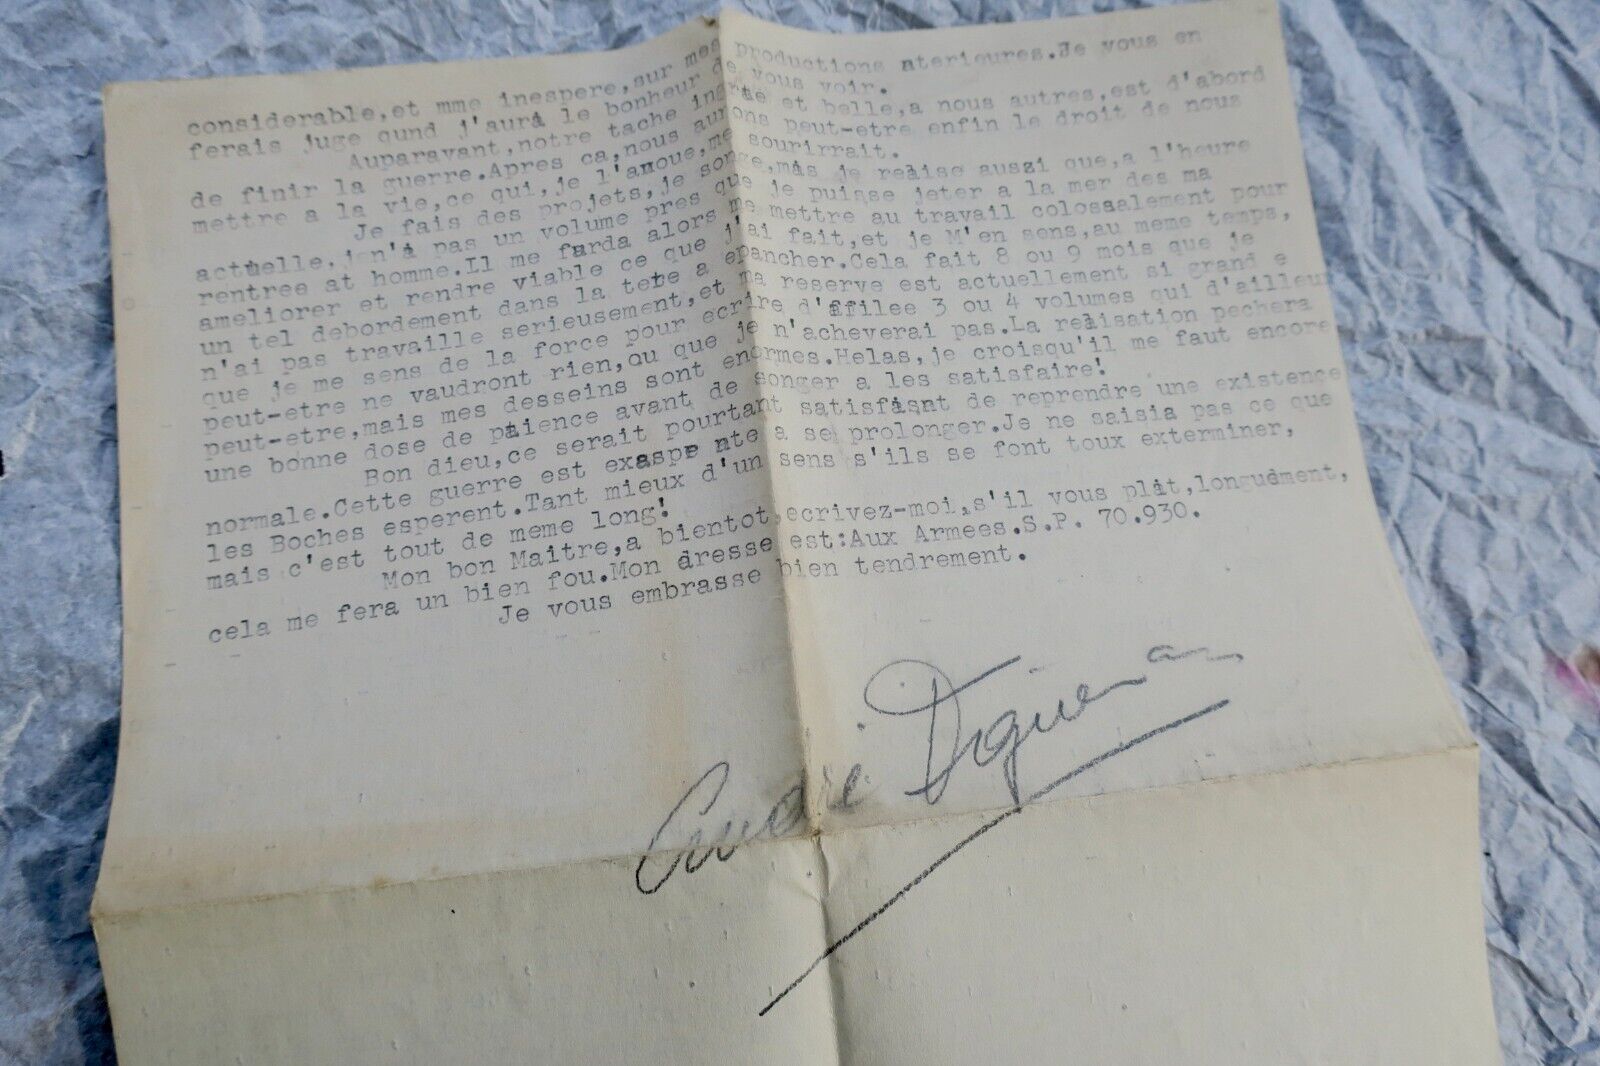 considerable,et mme inespere,sur mes productions aterieures.Je vous en
ferais juge qund j'aurà le bonheur de vous voir.
Auparavant,notre tache ingrate et belle,a nous autres,est d'abord
de finir la guerre.Apres ca,nous aurons peut-etre enfin le droit de nous
mettre a la vie,ce qui,je l'anoue,me sourirrait.
Je fais des projets,je songe,màs je reàise aussi que,a l'heure
actuelle,j n'à pas un volume pres que je puisse jeter a la mer des ma
rentree at homme.Il me farda alors me mettre au travail colossalement pour
ameliorer et rendre viable ce que j'ai fait,et je M'en sens,au meme temps,
un tel debordement dans la tete a epancher.Cela fait 8 ou 9 mois que je
n'ai pas travaille serieusement,et ma reserve est actuellement si grand e
que je me sens de la force pour ecrire d'affilee 3 ou 4 volumes qui d'ailleur
peut-etre ne vaudront rien,ou que je n'acheverai pas.La reàisation pechera
peut-etre,mais mes desseins sont enormes.Helas,je croisqu'il me faut encore
une bonne dose de patience avant de songer a les satisfaire!
Bon dieu,ce serait pourtant satisfàsnt de reprendre une existence
normale.Cette guerre est exaspe nte a se prolonger.Je ne saisia pas ce que
les Boches esperent.Tant mieux d'un sens s'ils se font toux exterminer,
mais c'est tout de meme long!
Mon bon Maitre,a bientot,ecrivez-moi,s'il vous plàt,longuèment,
cela me fera un bien fou.Mon adresse est:Aux Armees.S.P. 70.930.
Je vous embrasse bien tendrement.
André